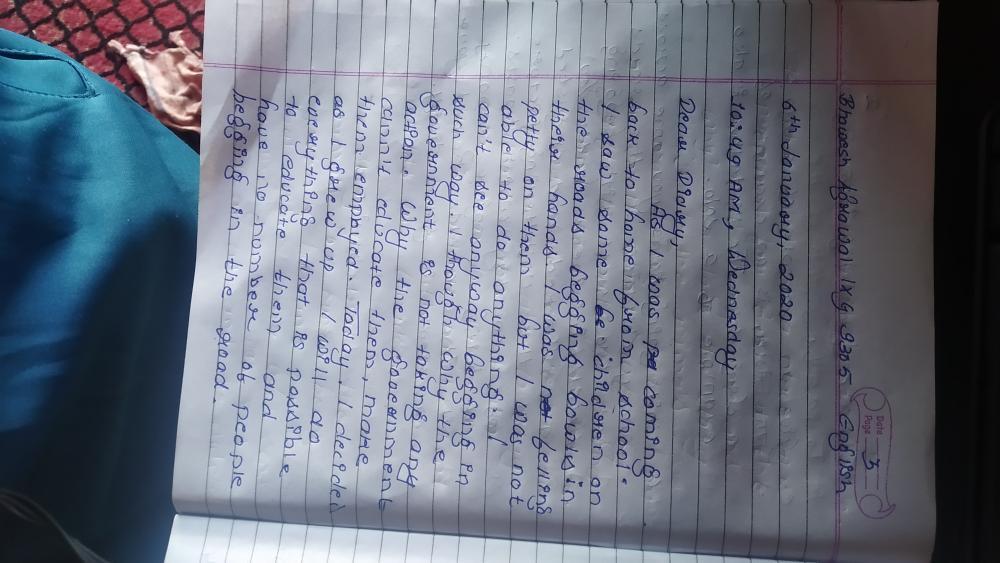 Date
Page 3
Bhavesh Agrawal IX G 9305 English
6th January, 2020
10:49 AM, Wednesday
Dear Diary,
As I was coming
back to home from school.
I saw some children on
the roads begging bowls in
their hands I was felling
petty on them but I was not
able to do anything. I
can't see anyway begging in
such way. I though why the
government is not taking any
action. Why the government
cann't educate them, make
them employed. Today, I decided
as I grew up I will do
everything that is possible
to educate them and
have no number of people
begging in the road.